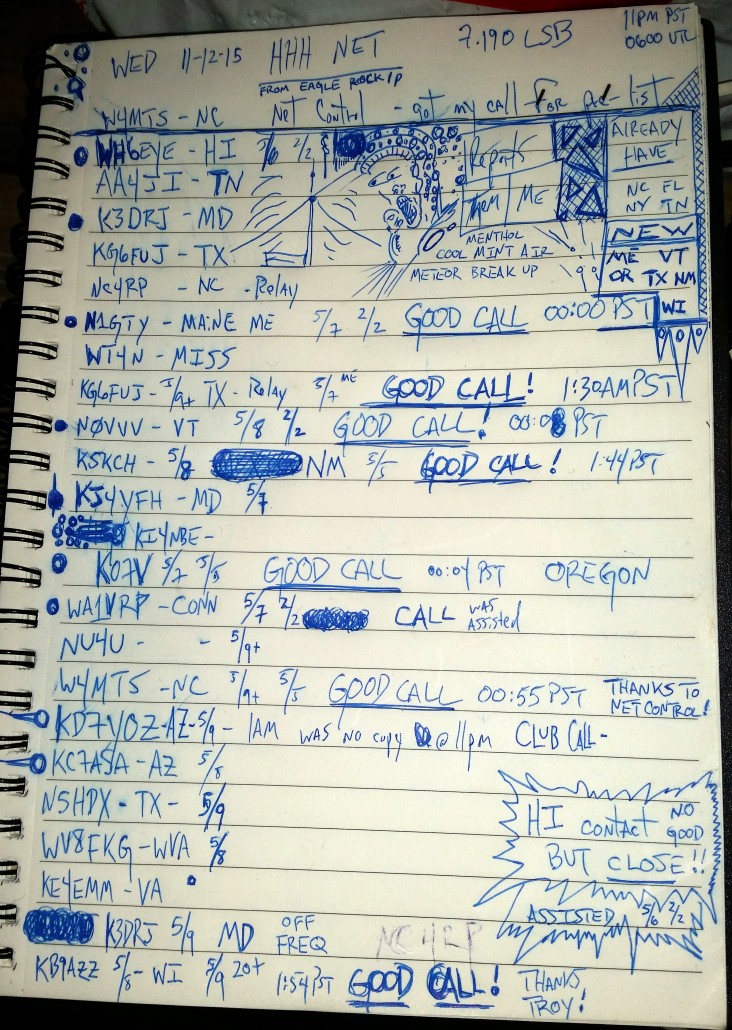 WED 11-12-15 HHH NET 7.190 LSB 11PM PST
0600 UTC
FROM EAGLE ROCK /P
W4MTS - NC Net Control - got my call for list
WH6EYE - HI 5/6 2/2 Reports
Them / ME
AA4JI - TN
K3DRJ - MD
KG6FUJ - TX
MENTHOL
COOL MINT AIR
METEOR BREAK UP
ALREADY
HAVE
NC FL
NY TN
NEW
ME VT
OR TX NM
WI
NC4RP - NC - Relay
N1GTY - MAINE ME 5/7 2/2 GOOD CALL 00:00 PST
WT4N - MISS
KG6FUJ - 5/9+ TX - Relay 5/7 ME GOOD CALL! 1:30AM PST
NØVVV - VT 5/8 2/2 GOOD CALL! PST
K5KCH - 5/8 NM 5/5 GOOD CALL! 1:44 PST
KJ4VFH - MD 5/7
KI4NBE -
KO7V 5/7 5/5 GOOD CALL 00:04 PST OREGON
WA1VRP - CONN 5/7 2/2 CALL WAS
Assisted
NU4U - - 5/9+
W4MTS - NC 5/9+ 5/5 GOOD CALL 00:55 PST THANKS TO
NET CONTROL!
KD7YOZ - AZ - 5/9 - 1AM WAS NO COPY @ 11pm CLUB CALL -
KC7ASA - AZ 5/8
N5HDX - TX - 5/9
WV8FKG - WVA 5/8
KE4EMM - VA
HI CONTACT NO
GOOD
BUT CLOSE!!
ASSISTED 5/6 2/2
K3DRJ 5/9 MD OFF
FREQ
NC4RP
KB9AZZ 5/8 - WI 5/9 20+ 1:54 PST GOOD CALL! THANKS
TROY!